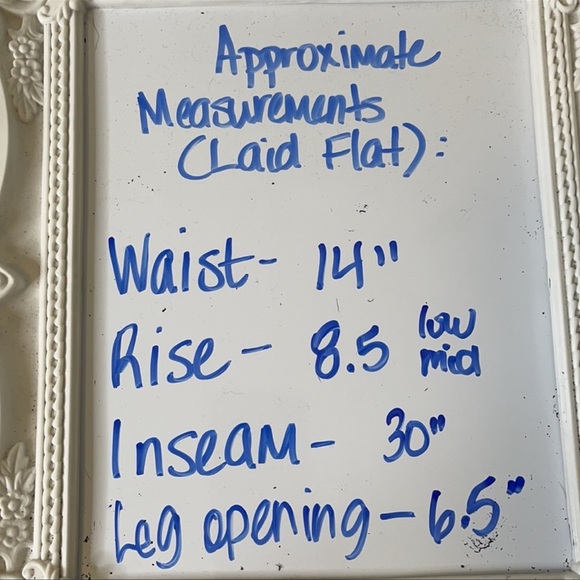 Approximate
Measurements
(Laid Flat):
Waist- 14"
Rise- 8.5 low mid
Inseam- 30"
Leg opening- 6.5"